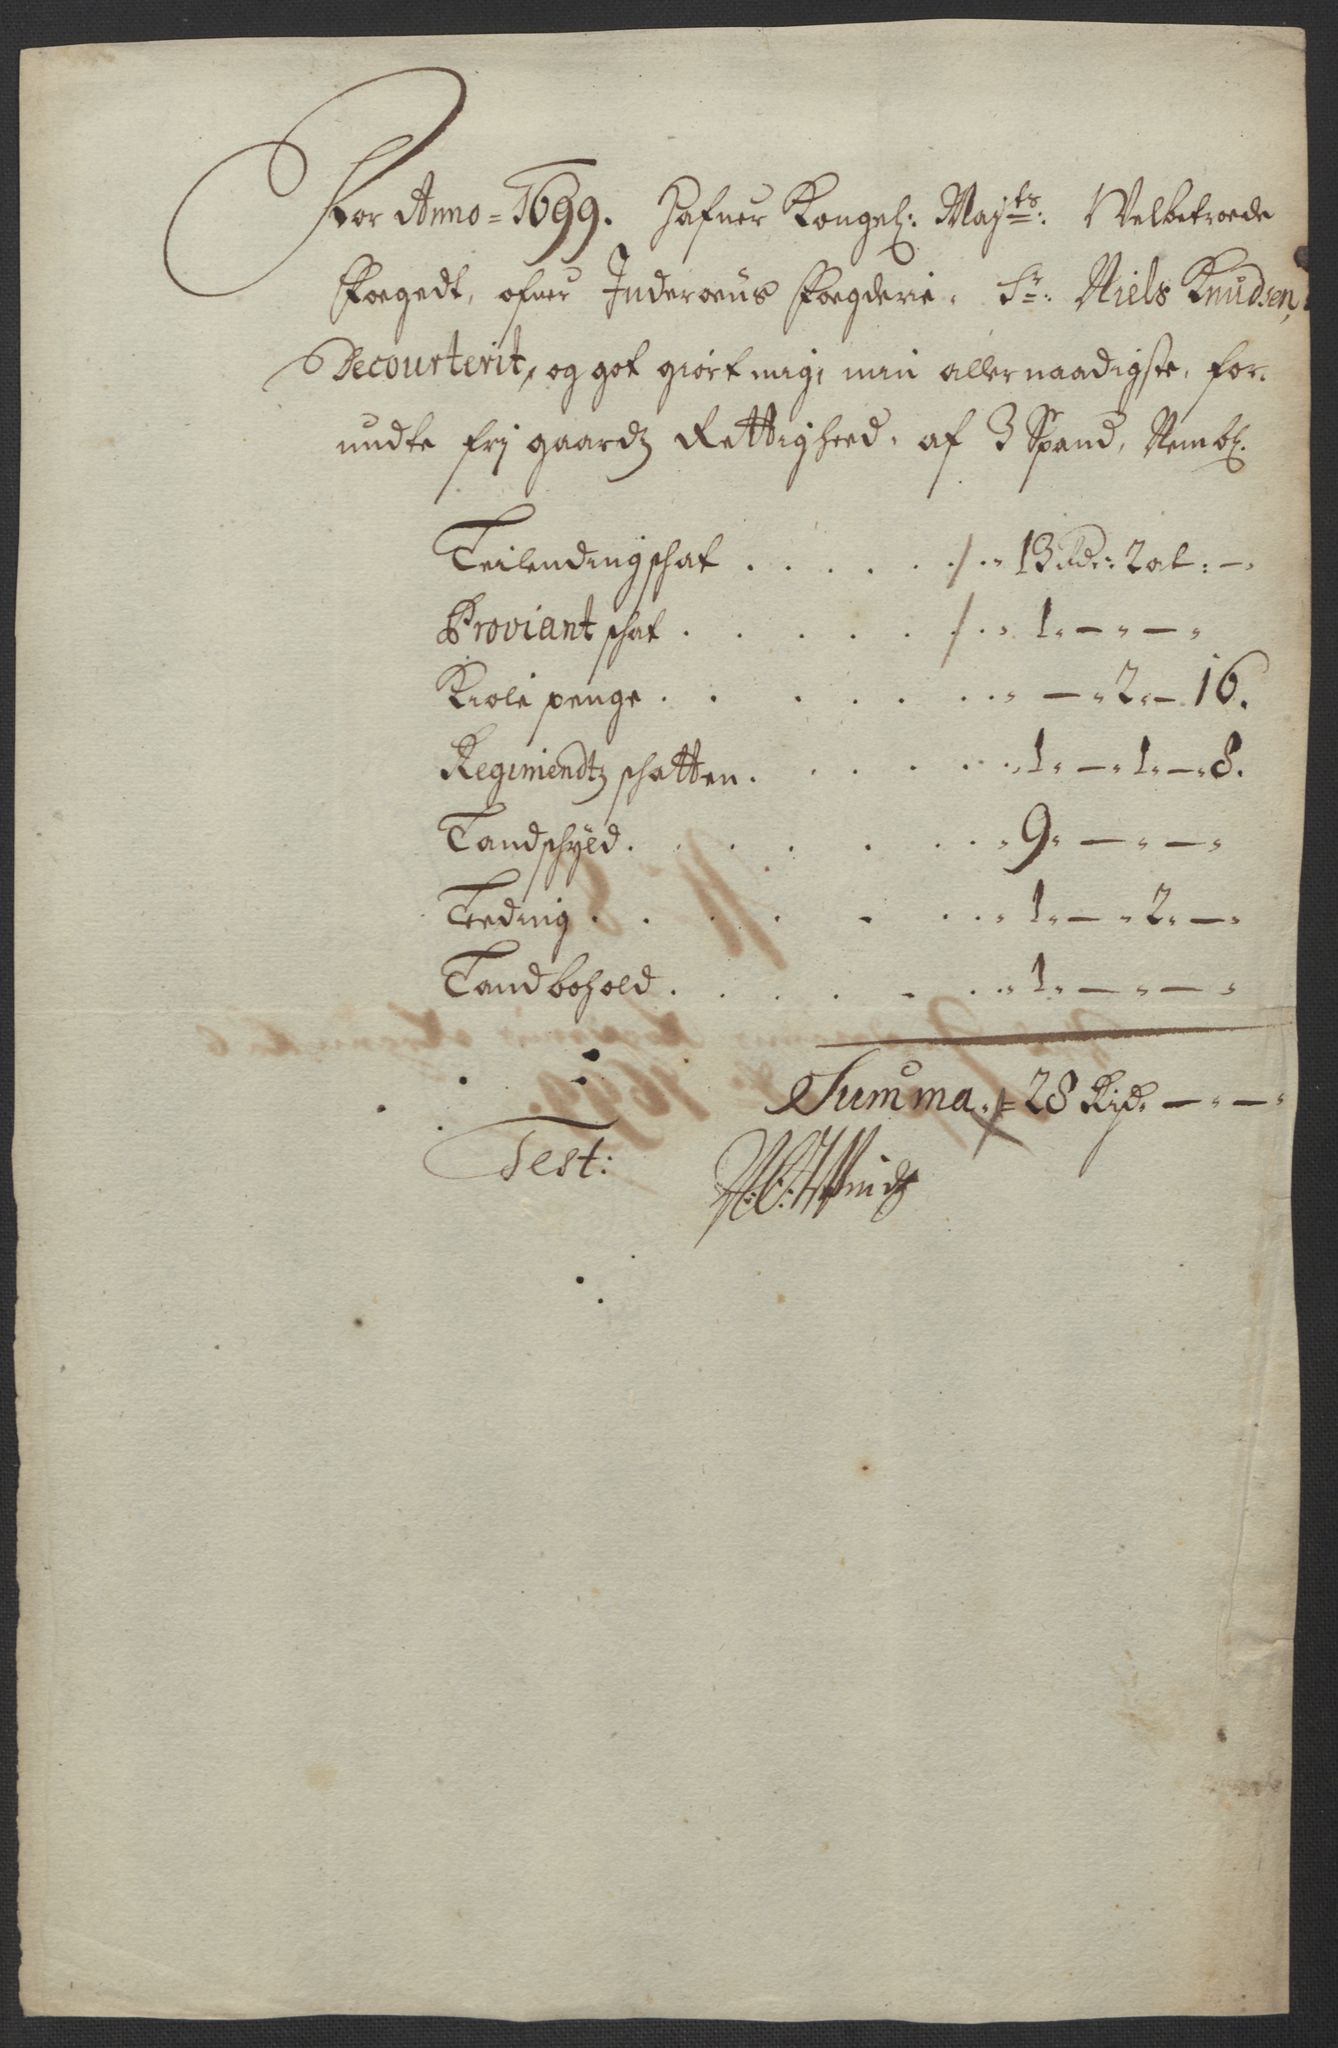 For Anno = 1699. Hafuer Kongel: Maj:ts: Welbetroede
Foegedt, ofuer Inderøens Foegderie, Sr: Niels Knudsen,
Decourterit, og got giört mig, min allernaadigste, for-
undte frj gaardz Rettighed, af 3 Spand, Nembl:
Leilendingschat . . . . . 13 Rdr: 2 ort: —
Proviant schat . . . . . 1 — —
Kiole penge . . . . . — 2 — 16.
Regimendtz schatten . . . . . 1 — 1 — 8.
Landschyld . . . . . 9 — —
Leeding . . . . . 1 — 2 —
Landbohold . . . . . 1 — —
Summa = 28 Rdr — —
Test: